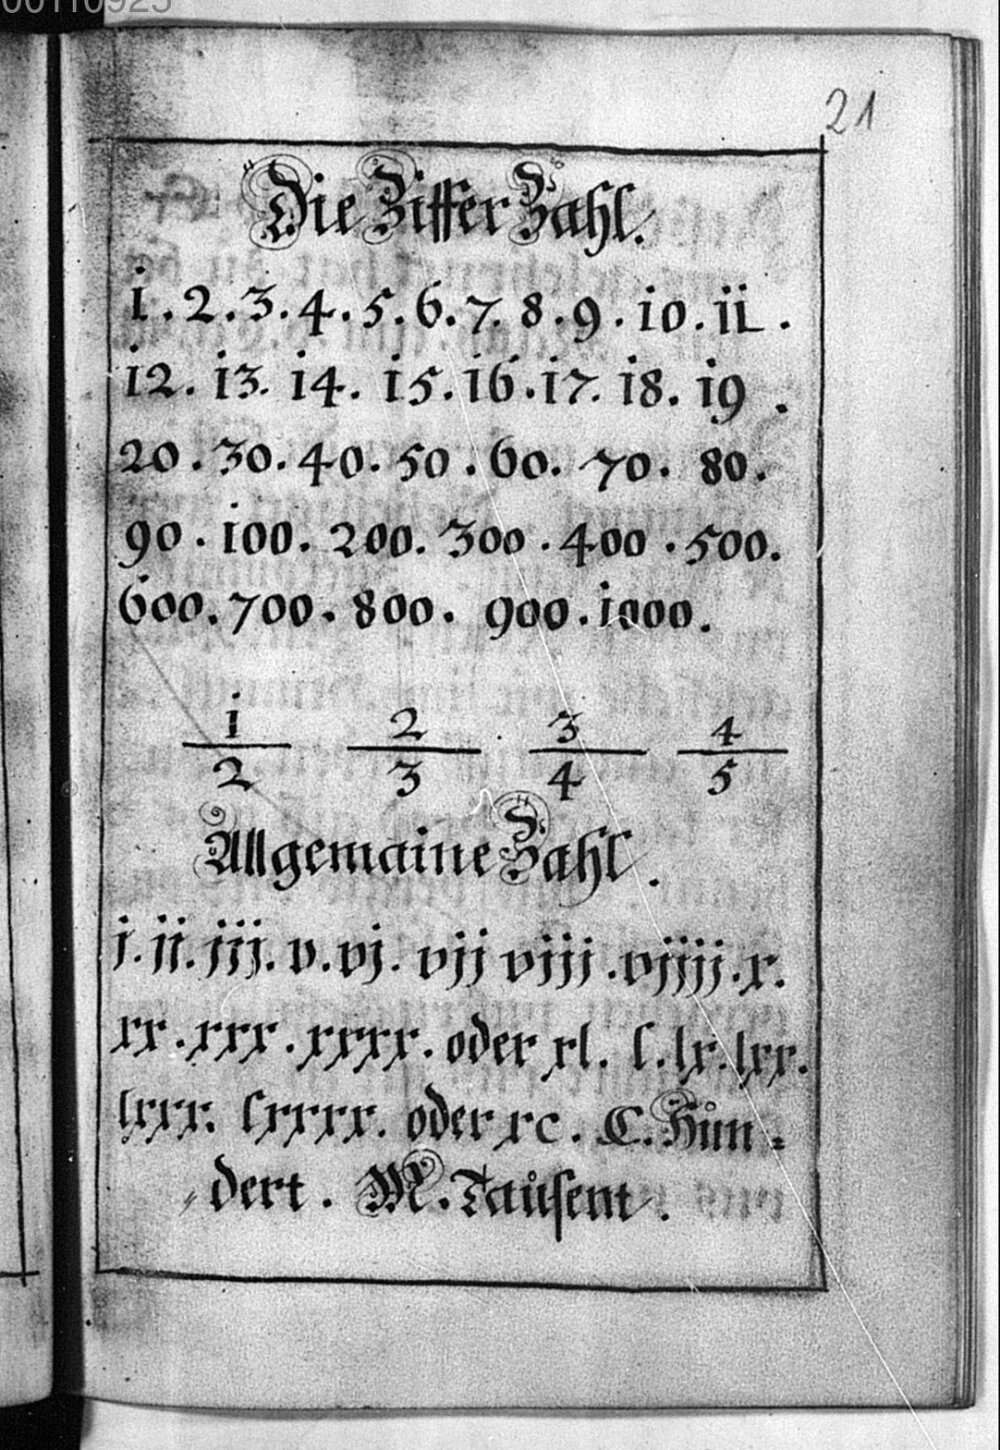 00110925
21
Die Ziffer Zahl.
1. 2. 3. 4. 5. 6. 7. 8. 9. 10. 11.
12. 13. 14. 15. 16. 17. 18. 19.
20. 30. 40. 50. 60. 70. 80.
90. 100. 200. 300. 400. 500.
600. 700. 800. 900. 1000.
1/2 2/3 3/4 4/5
Allgemaine Zahl.
j. jj. jjj. v. vj. vjj vjjj. vjjjj. x.
xx. xxx. xxxx. oder xl. l. lx. lxx.
lxxx. lxxxx. oder xc. C. Hun=
dert. M. Tausent.